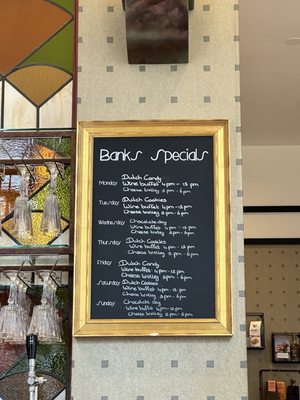 Banks Specials
Monday
Dutch Candy
Wine buffet 4 pm - 12 pm
Cheese tasting 5 pm - 6 pm
Tuesday
Dutch Cookies
Wine buffet 4 pm - 12 pm
Cheese tasting 5 pm - 6 pm
Wednesday
Chocolate day
Wine buffet 4 pm - 12 pm
Cheese tasting 5 pm - 6 pm
Thursday
Dutch Cookies
Wine buffet 4 pm - 12 pm
Cheese tasting 5 pm - 6 pm
Friday
Dutch Candy
Wine buffet 4 pm - 12 pm
Cheese tasting 5 pm - 6 pm
Saturday
Dutch Cookies
Wine buffet 4 pm - 12 pm
Cheese tasting 5 pm - 6 pm
Sunday
Chocolate day
Wine buffet 4 pm - 12 pm
Cheese tasting 5 pm - 6 pm